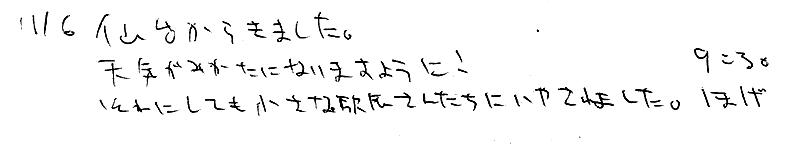 11/6 仙台からきました。
天気がみかたにないますように! 9:30
それにしても小さな駅尽さんたちにいやされました。 ほげ